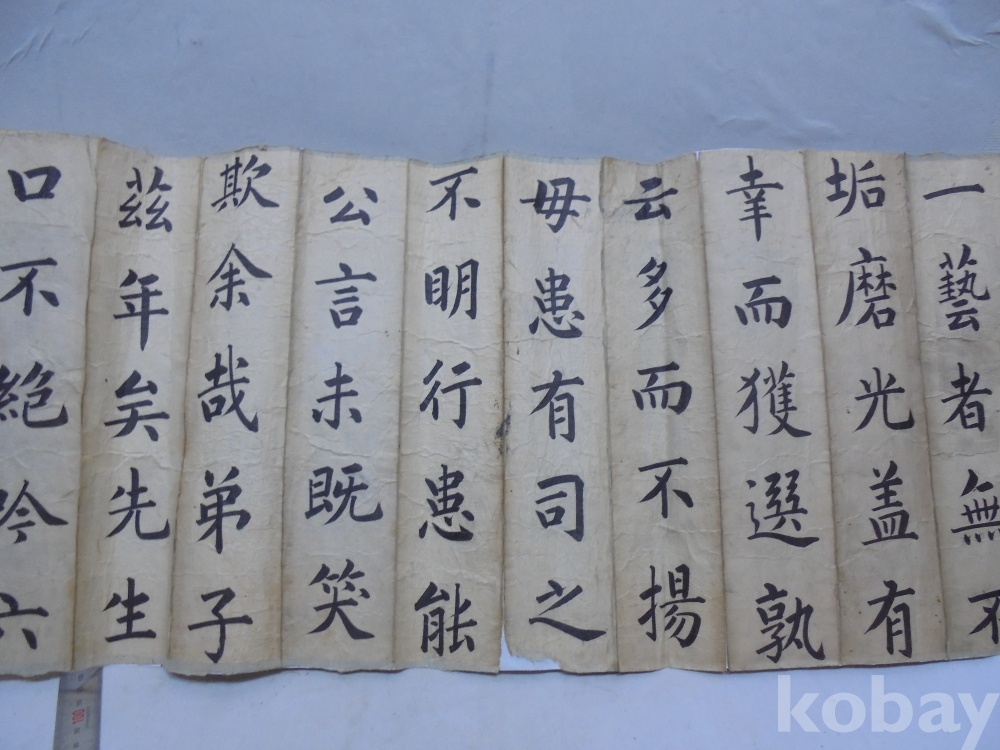 一藝者無不
垢磨光盖有
幸而獲選孰
云多而不揚
毋患有司之
不明行患能
公言未既笑
欺余哉弟子
茲年矣先生
口不絶吟六
kobay